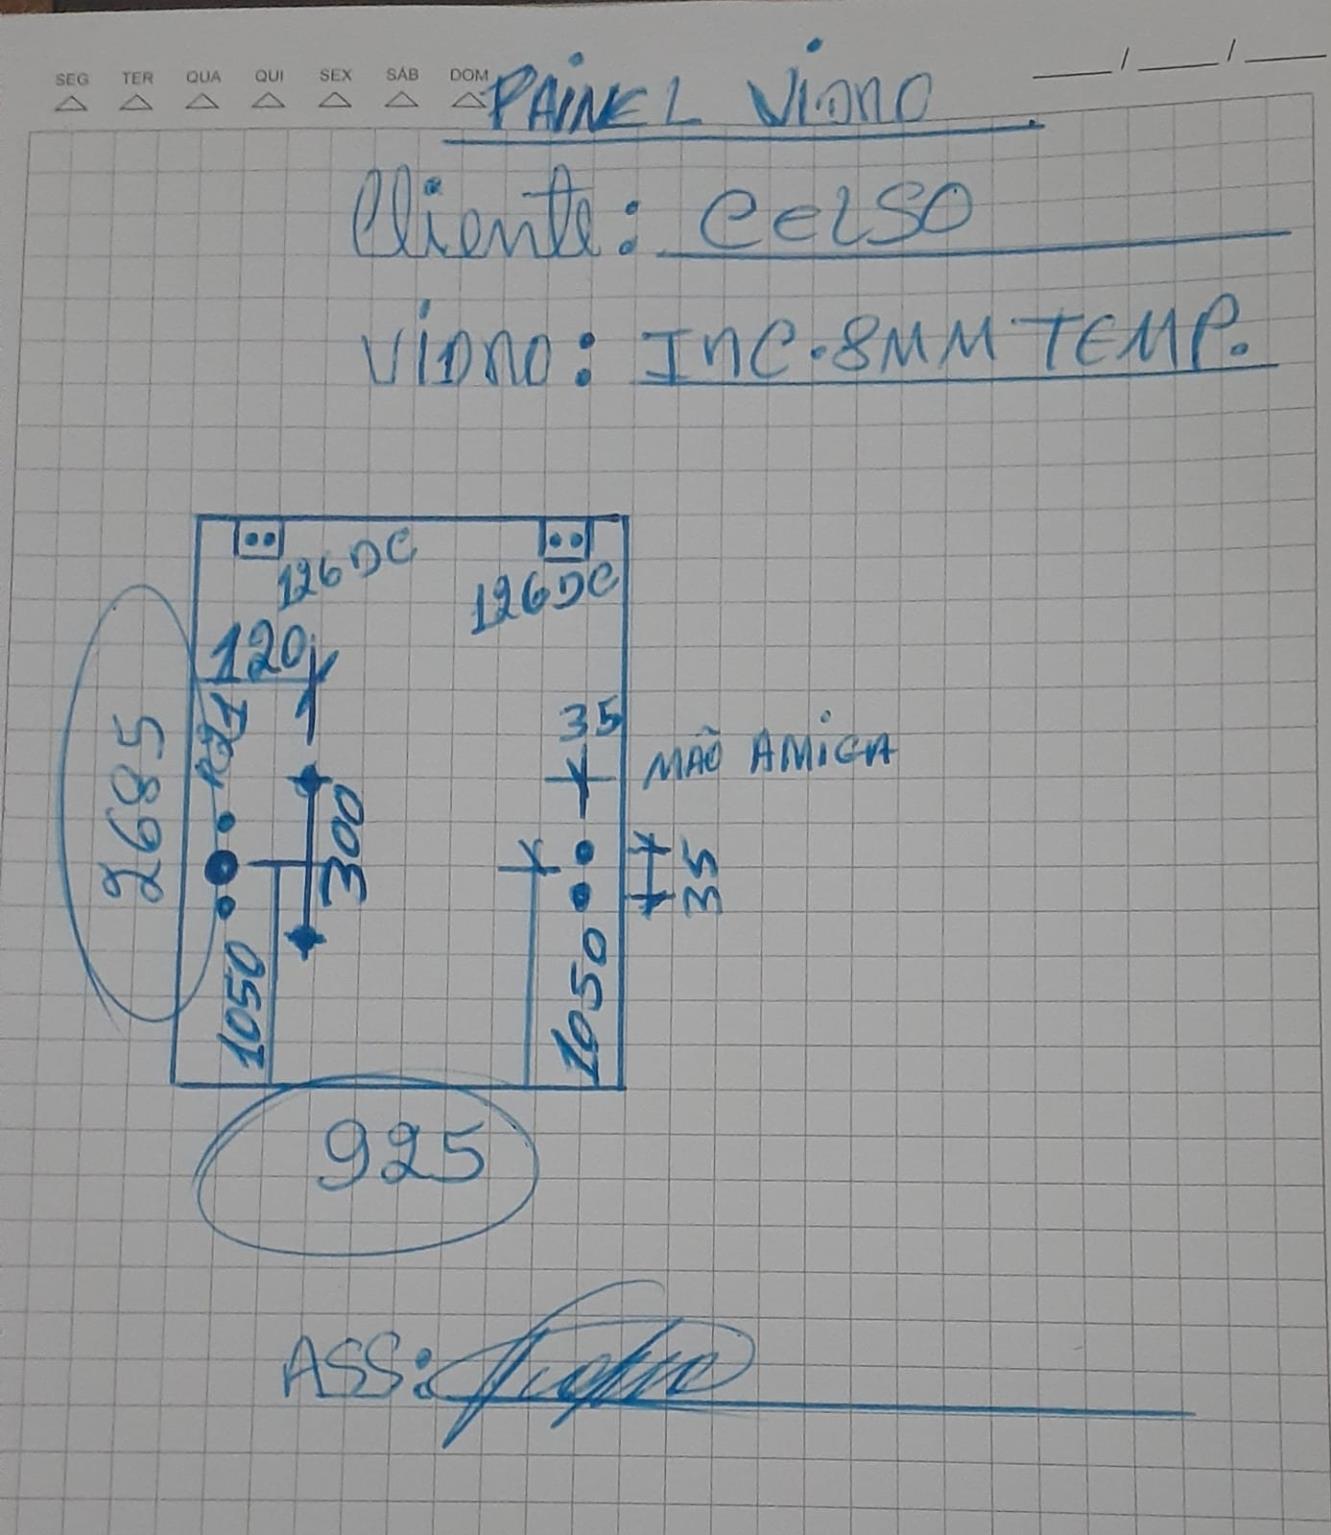 SEG TER QUA QUI SEX SÁB DOM
PAINEL VIDRO
Cliente: Celso
VIDRO: INC. 8MM TEMP.
126DC 126DC
120
35
MÃO AMIGA
2685
300
35
1050
1050
925
ASS: